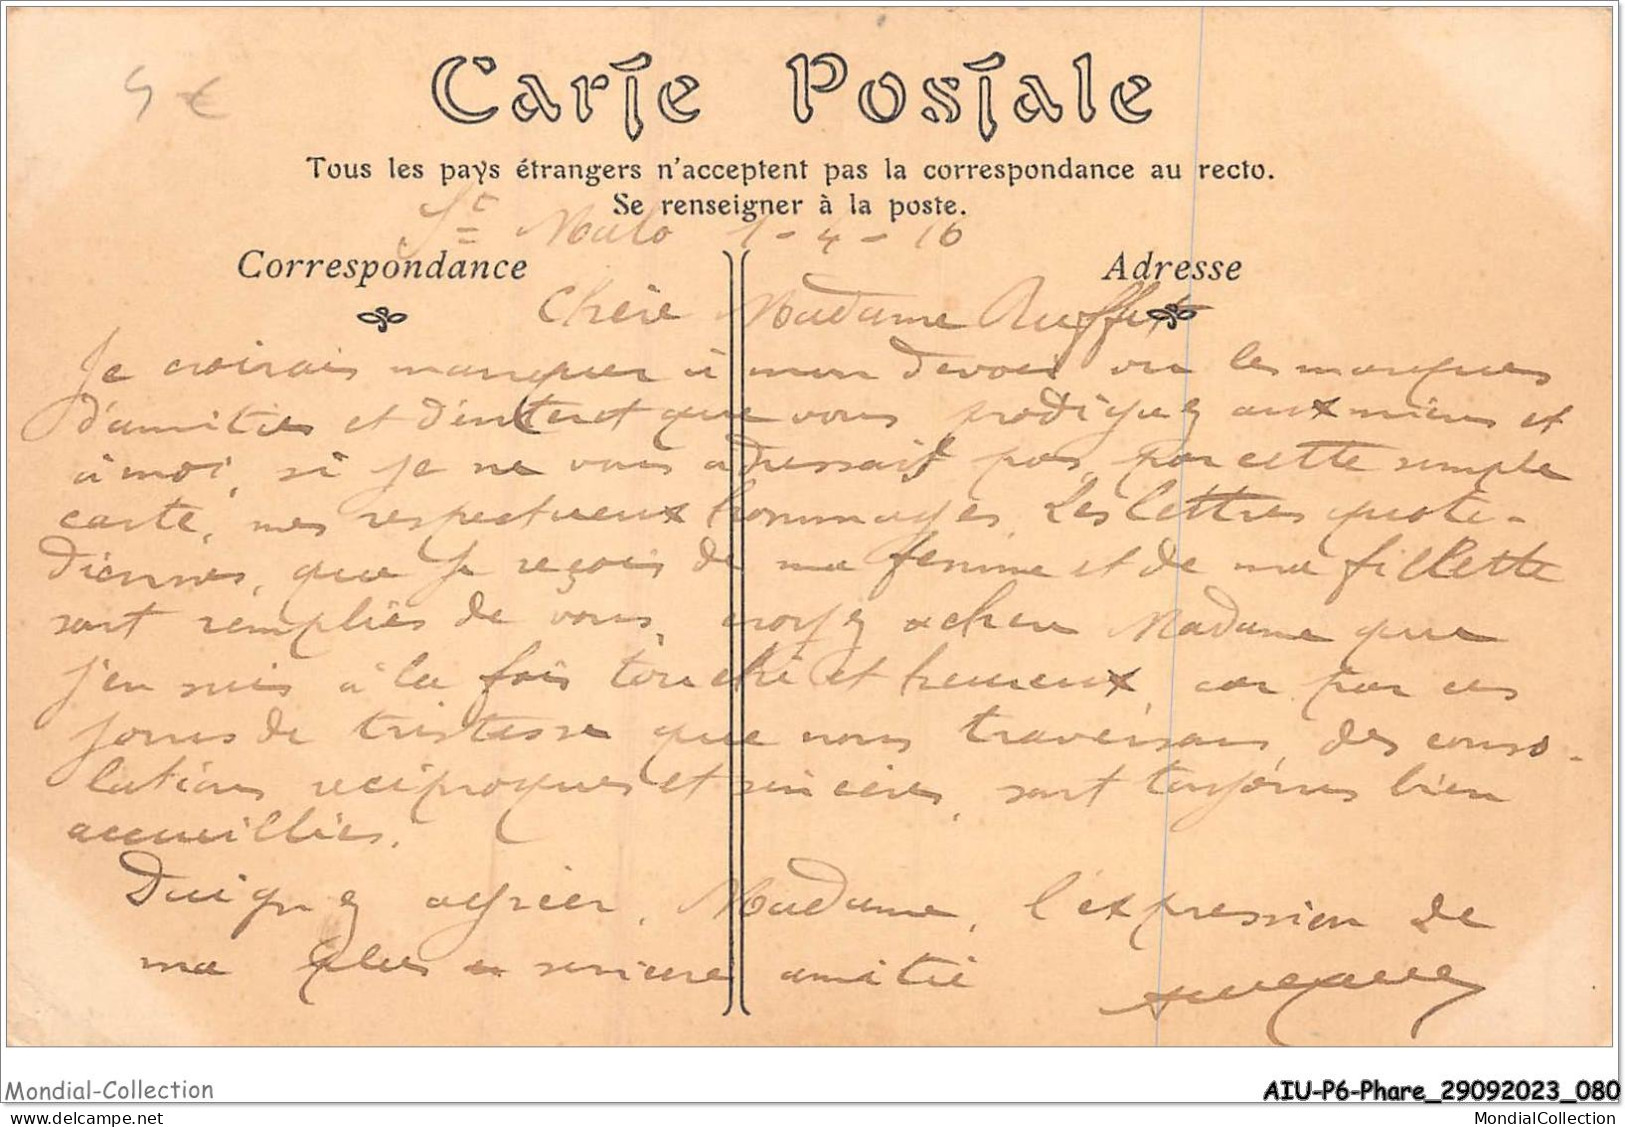 5 €
Carte Postale
Tous les pays étrangers n'acceptent pas la correspondance au recto.
Se renseigner à la poste.
St Malo 1-4-16
Correspondance Adresse
Chère Madame
Je croirais manquer à mon devoir vu les marques
d'amitiés et d'intéret que vous prodiguez aux miens et
à moi, si je ne vous adressais pas, par cette simple
carte, mes respectueux hommages. Les lettres quoti-
diennes, que je reçois de ma femme et de ma fillette
sont remplies de vous, croyez chère Madame que
j'en suis à la fois touché et heureux, car par ces
jours de tristesse que nous traversons, des conso-
lations réciproques et sincères, sont toujours bien
accueillies.
Daignez agréer, Madame, l'expression de
ma plus sincère amitié
Mondial-Collection
AIU-P6-Phare_29092023_080
delcampe.net
MondialCollection